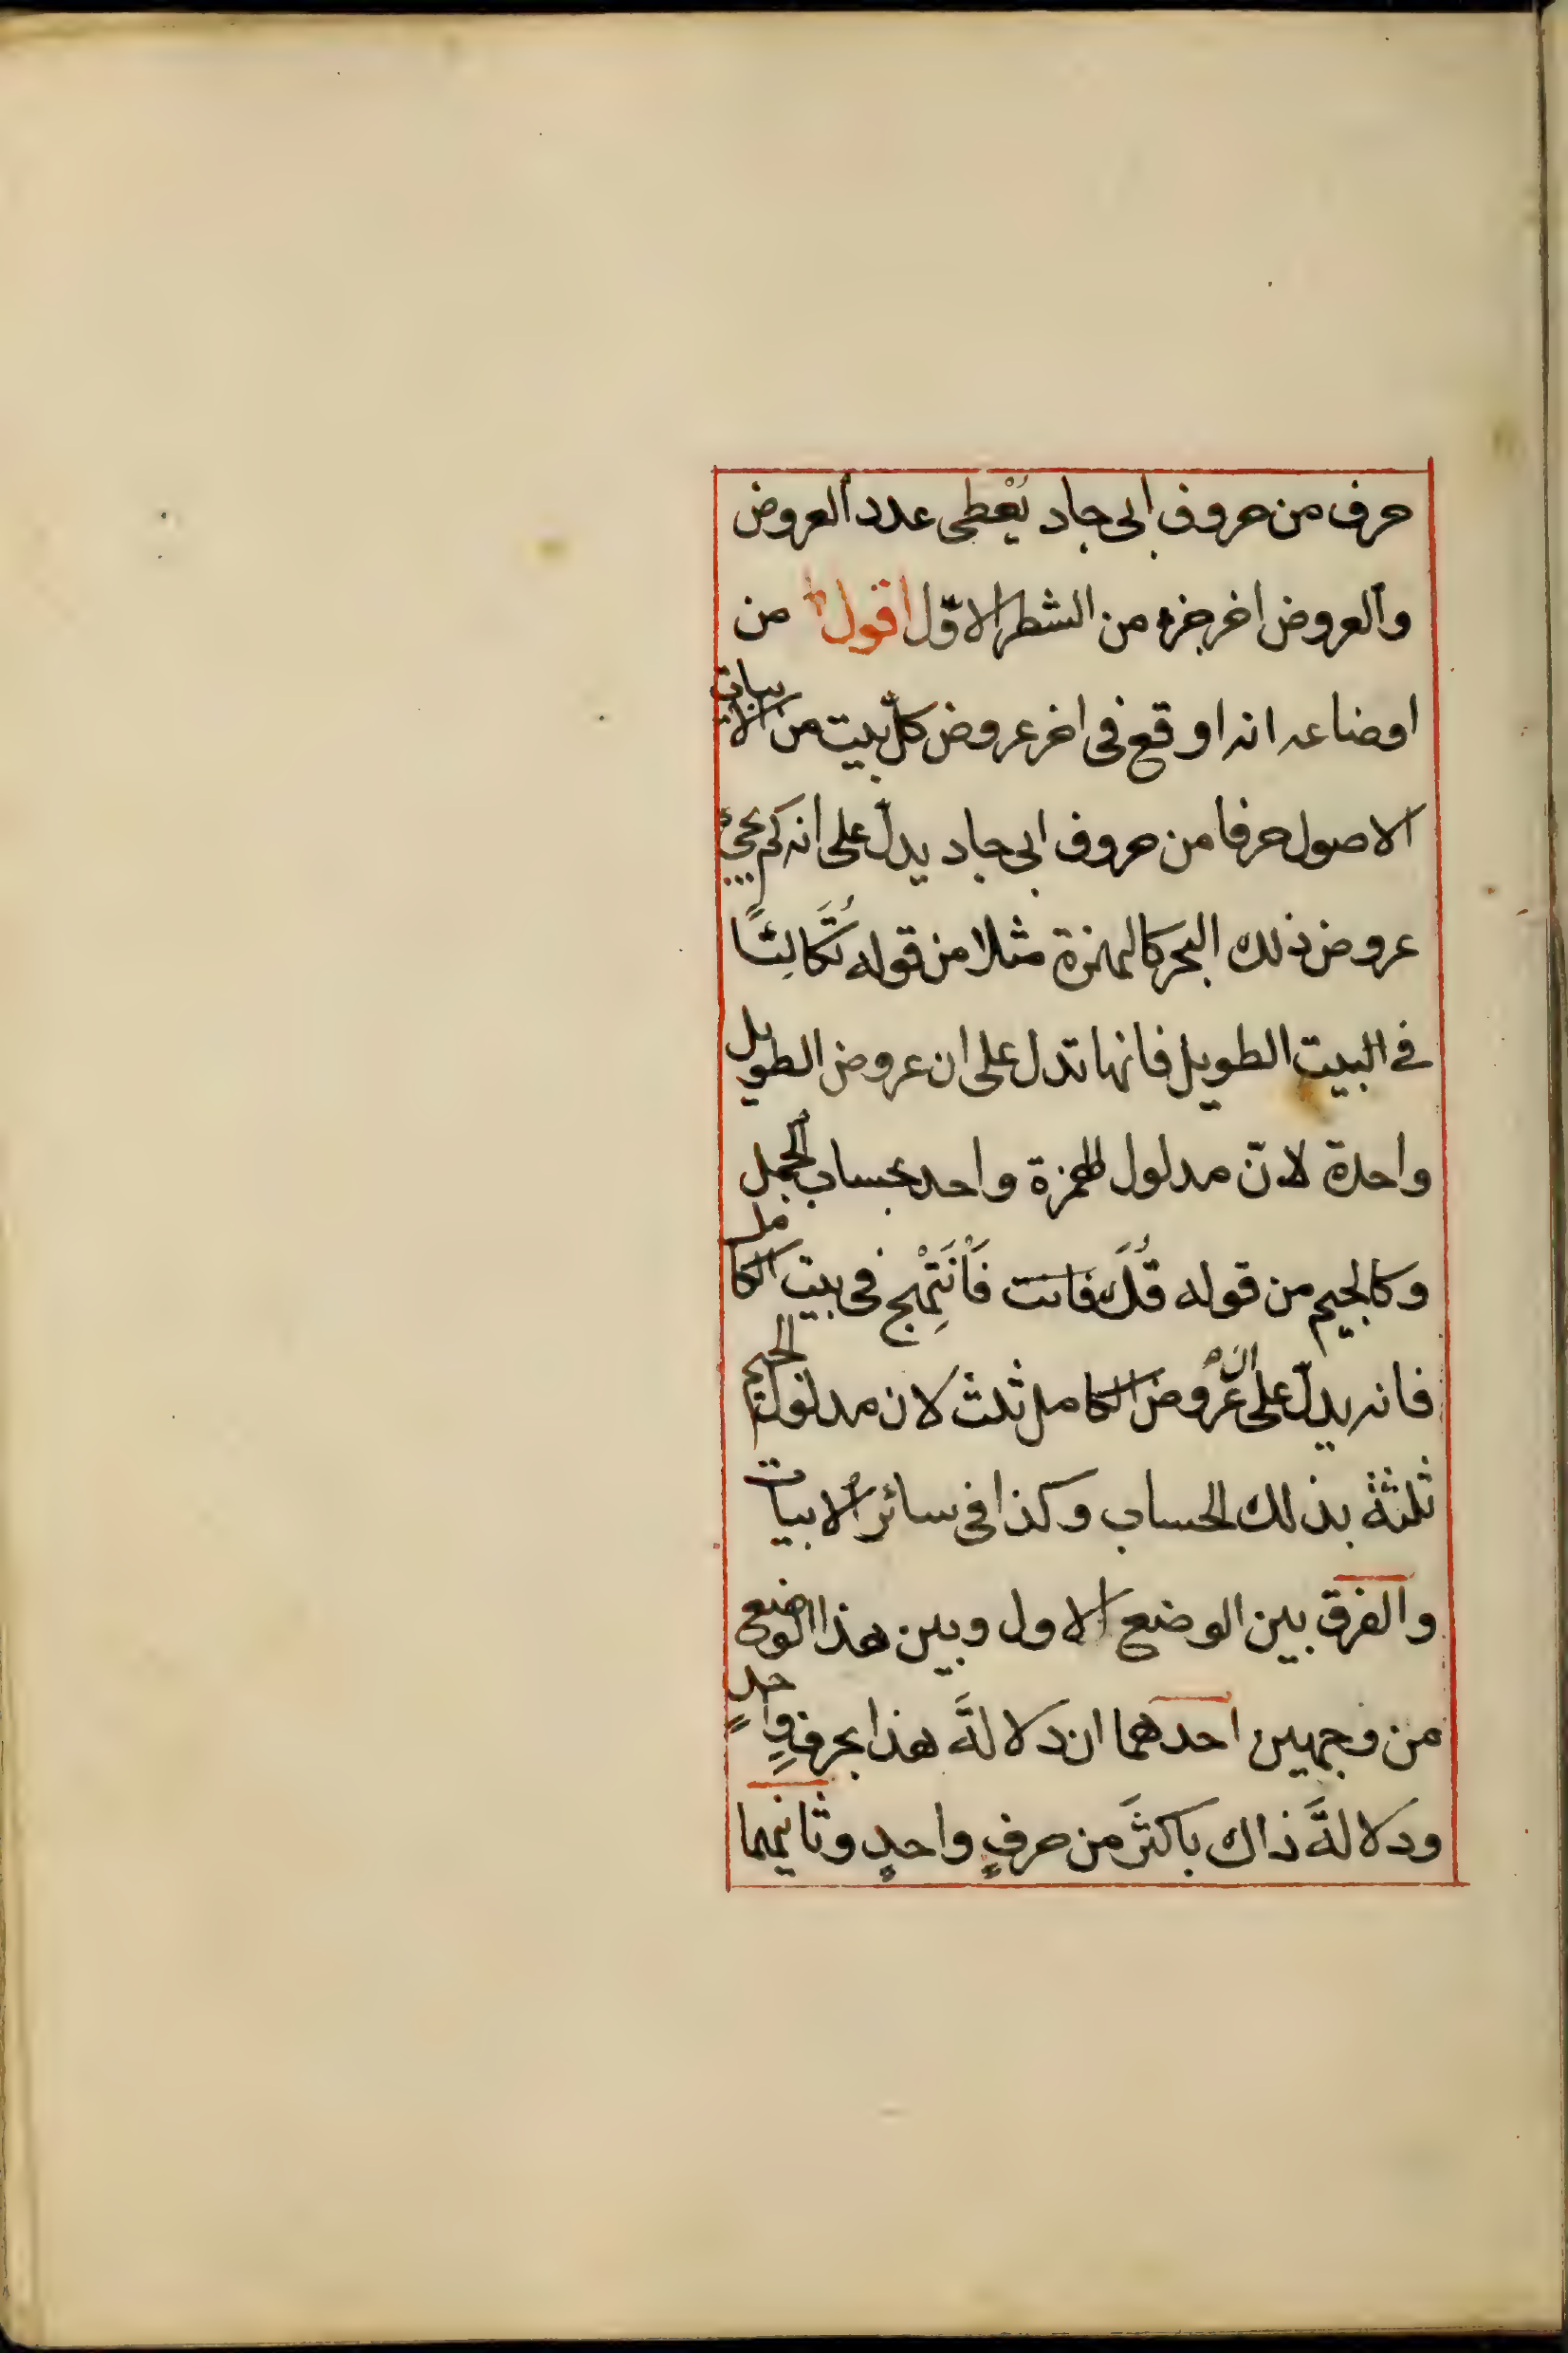 حرف من حروف ابى جاد يُعْطى عدد العروض
والعروض اخر جزء من الشطر الاوّل اقول من
اوضاعه انه اوقع فى اخر عروض كلّ بيت من الابيات
الاصول حرفا من حروف ابى جاد يدلّ على انه كم يجئ
عروض ذلك البحر كالهمزة مثلا من قوله
فى البيت الطويل فانها تدل على ان عروض الطويل
واحدة لانّ مدلول الهمزة واحد بحساب الجمل
وكالجيم من قوله فى بيت الكامل
فانه يدلّ على انّ عروض الكامل ثلث لان مدلول الجيم
ثلثة بذلك الحساب وكذا فى سائر الابيات
والفرق بين الوضع الاول وبين هذا الوضع
من وجهين احدهما ان دلالةَ هذا بحرفٍ واحدٍ
ودلالةَ ذاك باكثرَ من حرفٍ واحدٍ وثانيهما